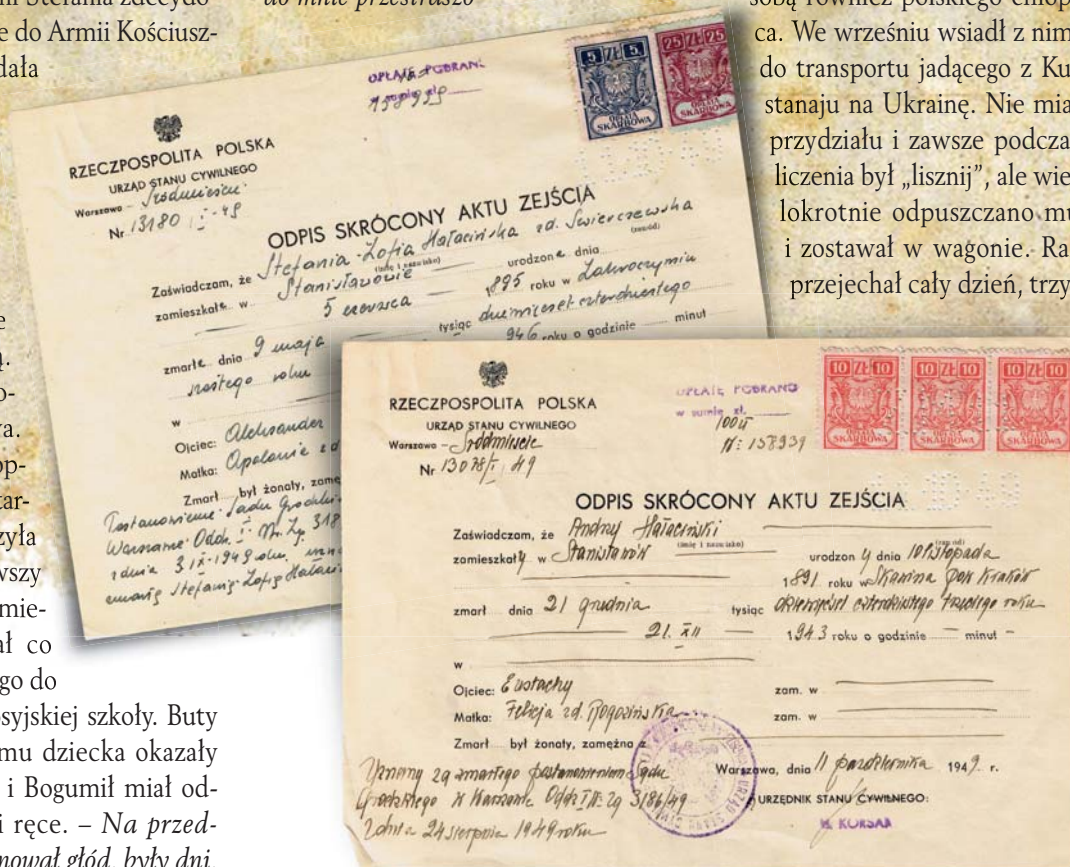 ni Stefania zdecydo-
do mnie przestraszo-
e do Armii Kościusz-
dała
e
ą.
o-
va.
op-
tar-
zyła
wszy
mie-
ał co
go do
syjskiej szkoły. Buty
mu dziecka okazały
i Bogumił miał od-
i ręce. – Na przed-
nował głód, były dni
sobą również polskiego chłop-
ca. We wrześniu wsiadł z nim
do transportu jadącego z Ku-
stanaju na Ukrainę. Nie mia
przydziału i zawsze podcza
liczenia był „lisznij”, ale wie
lokrotnie odpuszczano mu
i zostawał w wagonie. Ra
przejechał cały dzień, trzy
OPŁATĘ POBRANO
w sumie zł.
158939
5 ZŁ 5
25 ZŁ 25
OPŁATA SKARBOWA
OPŁATA SKARBOWA
RZECZPOSPOLITA POLSKA
URZĄD STANU CYWILNEGO
Warszawa – Śródmieście
Nr 13180 I-49
ODPIS SKRÓCONY AKTU ZEJŚCIA
Zaświadczam, że Stefania-Zofia Hałacińska zd. Świerczewska
(imię i nazwisko) (zawód)
zamieszkała w Stanisławowie urodzona dnia
5 czerwca 1895 roku w Zakroczymiu
zmarła dnia 9 maja tysiąc dziewięćset czterdziestego
szóstego roku 946 roku o godzinie minut
w
Ojciec: Aleksander
Matka: Apolonia zd
Zmarł był żonaty, zamę
Postanowienie Sądu Grodzki
Warszawie Oddz. I Nr. Zg 318
z dnia 3 IX-1949 roku uzna
zmarłą Stefanię-Zofię Hałaciń
RZECZPOSPOLITA POLSKA
URZĄD STANU CYWILNEGO
Warszawa – Śródmieście
Nr 13078/I 49
OPŁATĘ POBRANO
w sumie zł.
100 zł
N: 158939
10 ZŁ 10
10 ZŁ 10
10 ZŁ 10
OPŁATA SKARBOWA
OPŁATA SKARBOWA
OPŁATA SKARBOWA
ODPIS SKRÓCONY AKTU ZEJŚCIA
Zaświadczam, że Andrzej Hałaciński
(imię i nazwisko) (zawód)
zamieszkały w Stanisławów urodzony dnia 10 listopada
1891 roku w Skawina pow Kraków
zmarł dnia 21 grudnia tysiąc dziewięćset czterdziestego trzeciego roku
21. XII 1943 roku o godzinie – minut –
w
Ojciec: Eustachy zam. w
Matka: Felicja zd. Rogozińska zam. w
Zmarł był żonaty, zamężna z
Uznany za zmarłego postanowieniem Sądu
Grodzkiego w Warszawie Oddz I N: Zg 3186/49
z dnia 24 sierpnia 1949 roku
Warszawa, dnia 11 października 1949 r.
URZĘDNIK STANU CYWILNEGO:
KORSAK